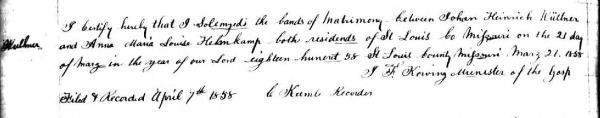 I certify hereby that I Solemzeds the bands of Matrimony between Johan Heinrich Wüllner
Wüllner and Anna Maria Louise Helmkamp both residends of St Louis co Missouri on the 21 day
of Marz in the year of our Lord eighteen hunent 58 St Louis county Missouri Marz 21. 1858
J F Kowing Menester of the Gosp
Filed & Recorded April 7th 1858 C Keemle Recorder